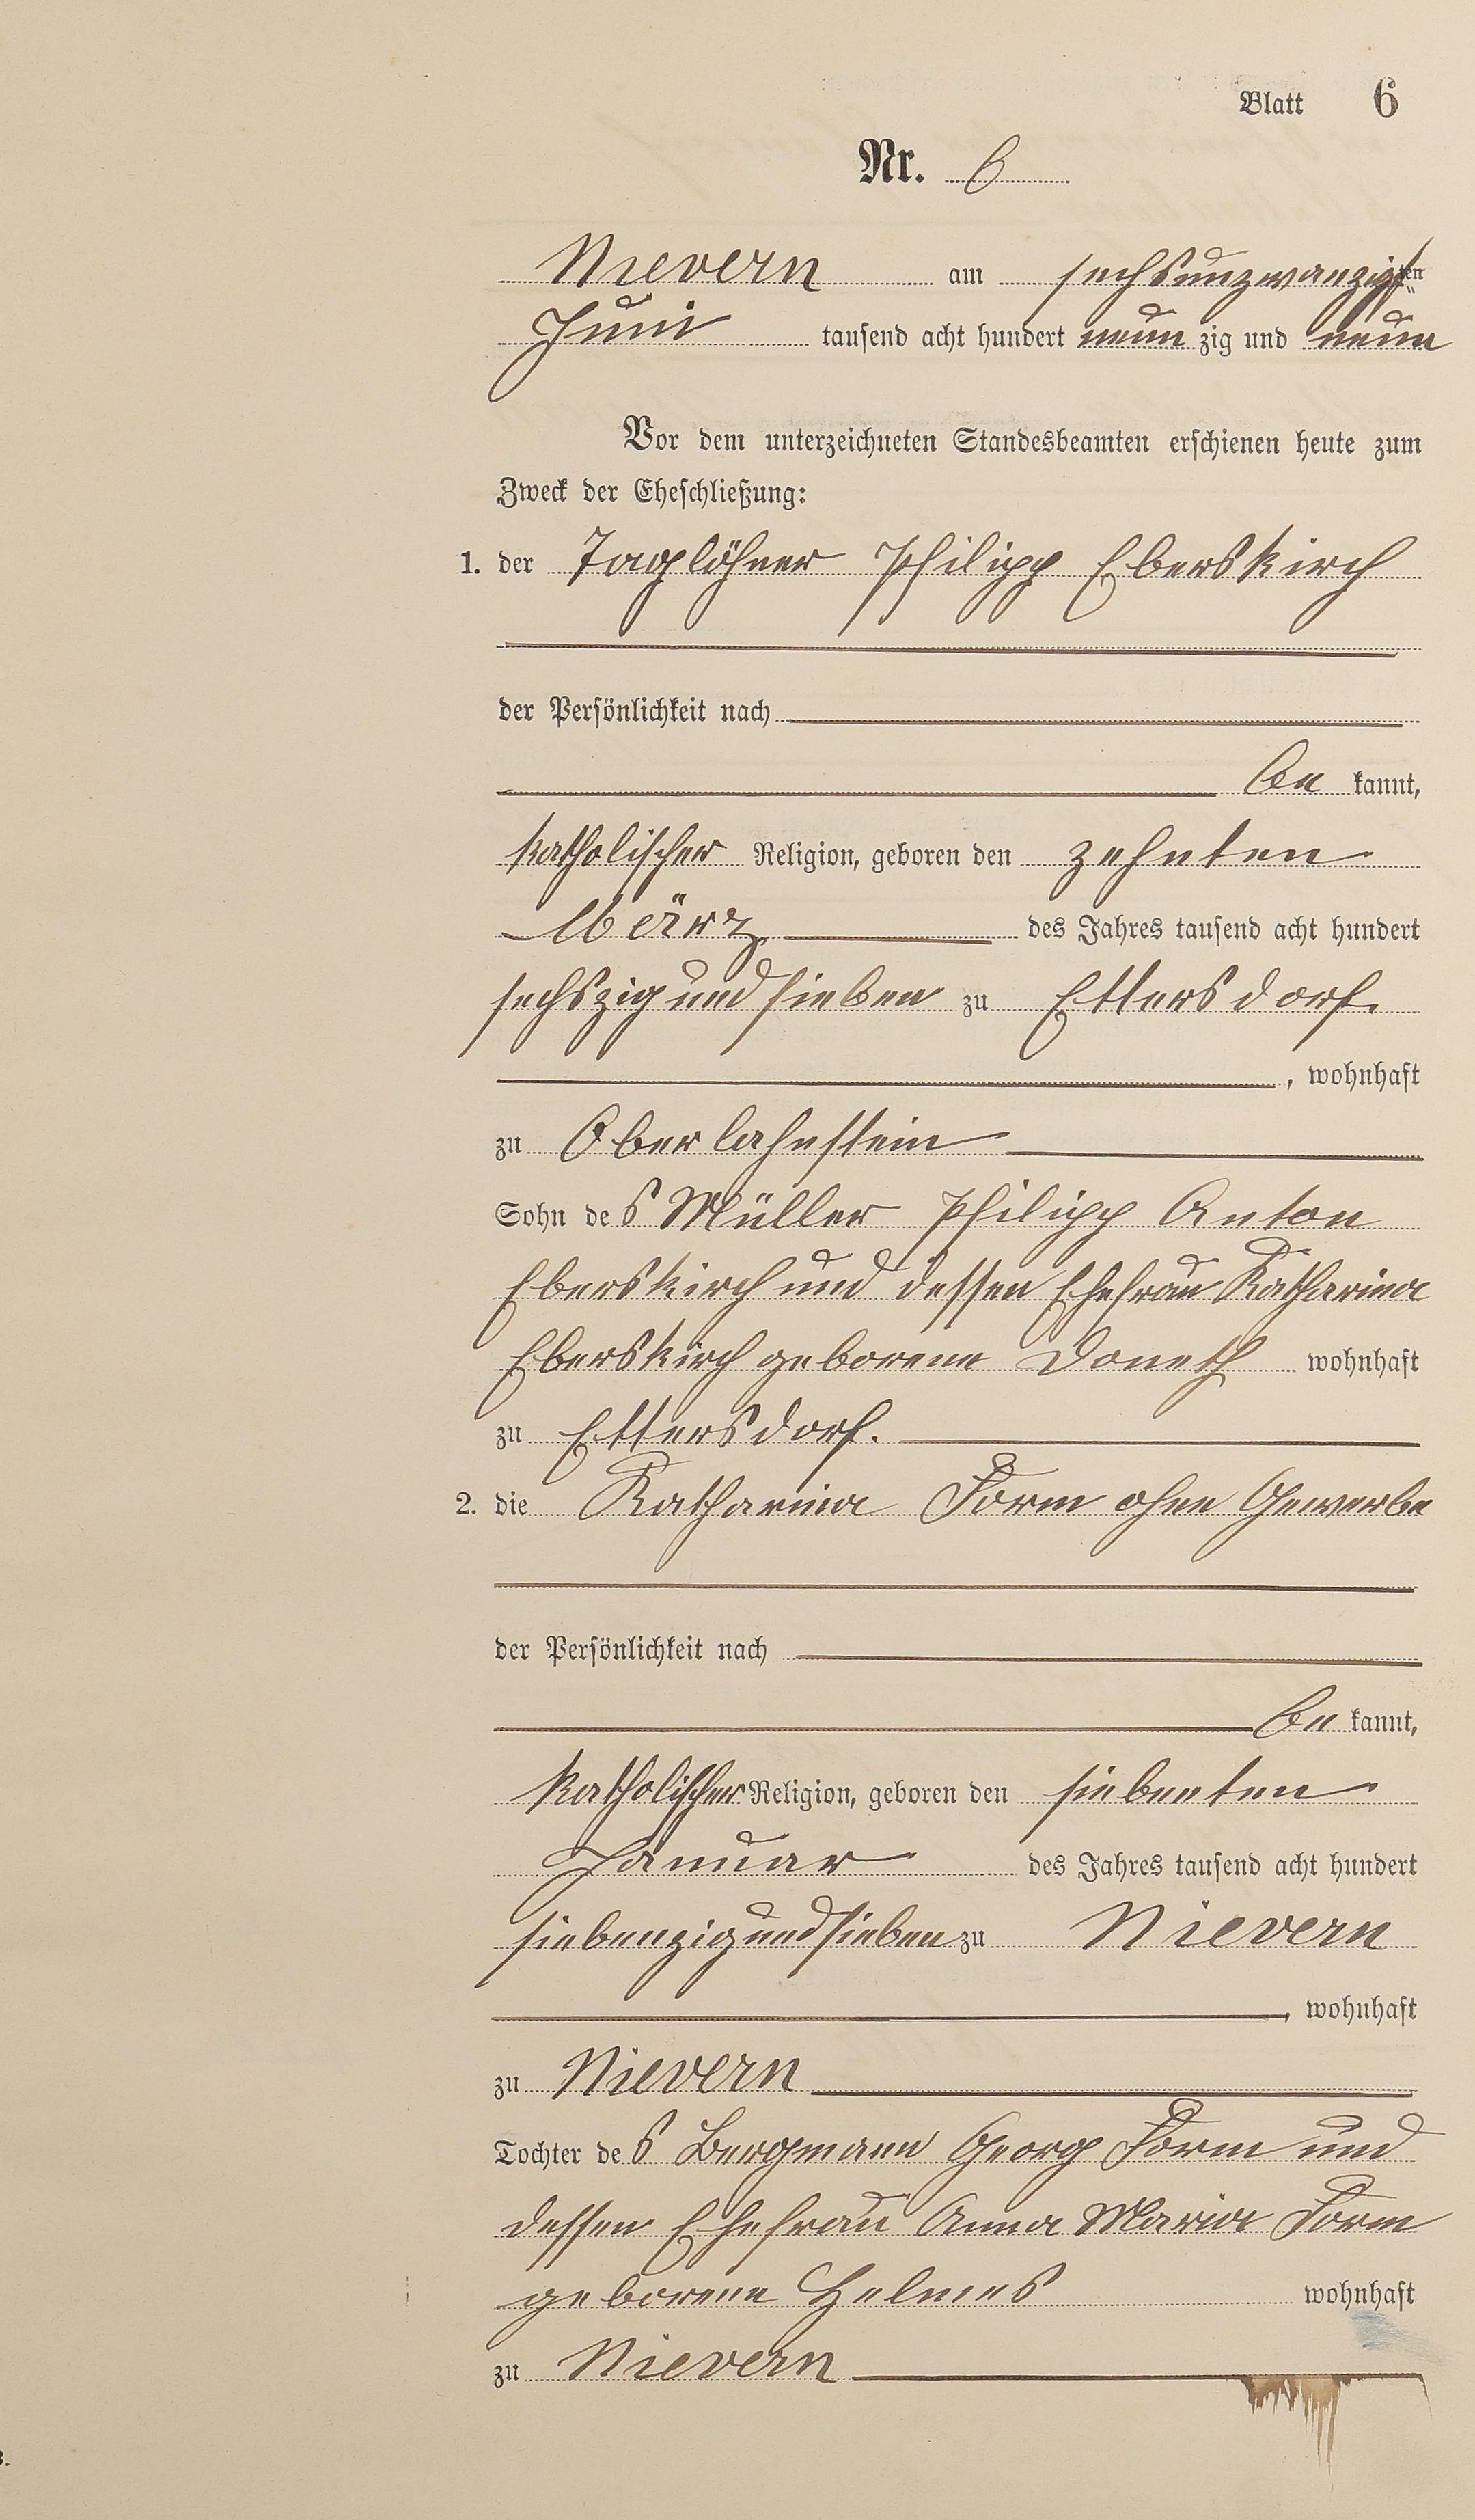 Blatt 6
Nr. 6
Nievern am sechsunzwanzigsten
Juni tausend acht hundert neun zig und neun
Vor dem unterzeichneten Standesbeamten erschienen heute zum
Zweck der Eheschließung:
1. der Taglöhner Philipp Eberskirch
der Persönlichkeit nach
be kannt,
katholischer Religion, geboren den zehnten
März des Jahres tausend acht hundert
sechszig und sieben zu Ettersdorf.
, wohnhaft
zu Oberlahnstein
Sohn des Müller Philipp Anton
Eberskirch und dessen Ehefrau Katharina
Eberskirch geborene Doneth wohnhaft
zu Ettersdorf.
2. die Katharina Form ohne Gewerbe
der Persönlichkeit nach
be kannt,
katholischer Religion, geboren den siebenten
Januar des Jahres tausend acht hundert
siebenzig und sieben zu Nievern
, wohnhaft
zu Nievern
Tochter des Bergmann Georg Form und
dessen Ehefrau Anna Maria Form
geborene Helmes wohnhaft
zu Nievern